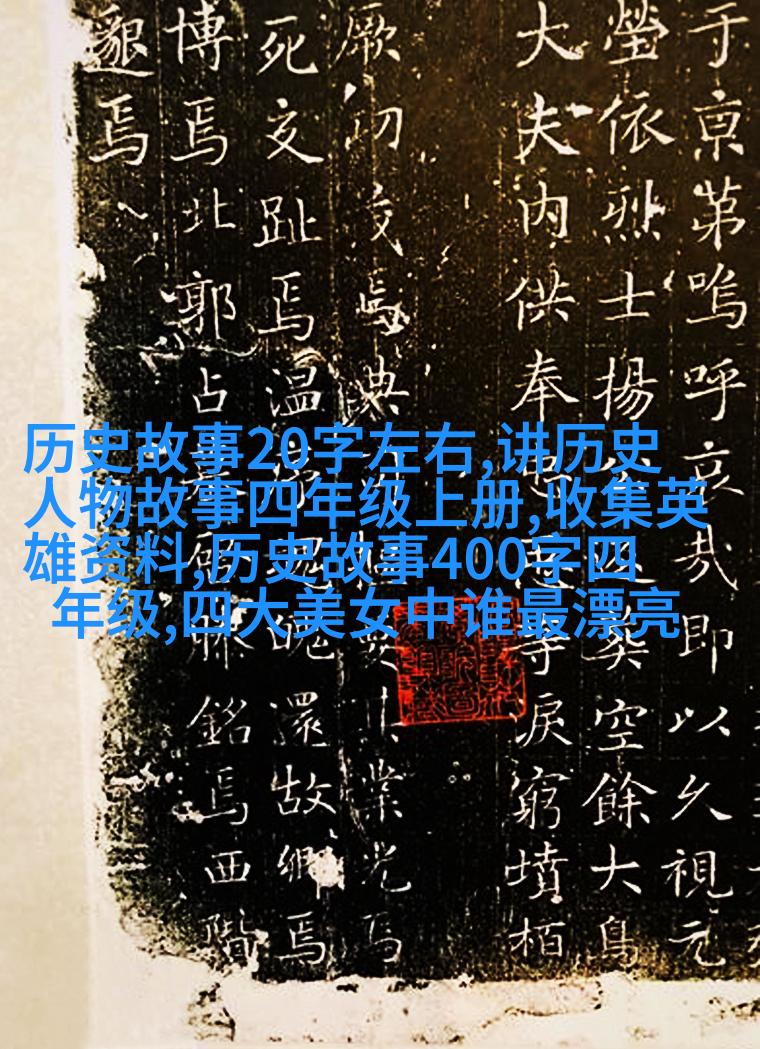 历史故事20字左右,讲历史
人物故事四年级上册,收集英
雄资料,历史故事400字四
年级,四大美女中谁最漂亮
于京第嗚呼哀哉即以久視元
塋依烈士揚空餘大鳥
大夫内供奉淚窮墳栢
厥功茂焉典業光焉
死交趾焉温還故鄉焉
博焉北郭占銘焉西階
邈焉